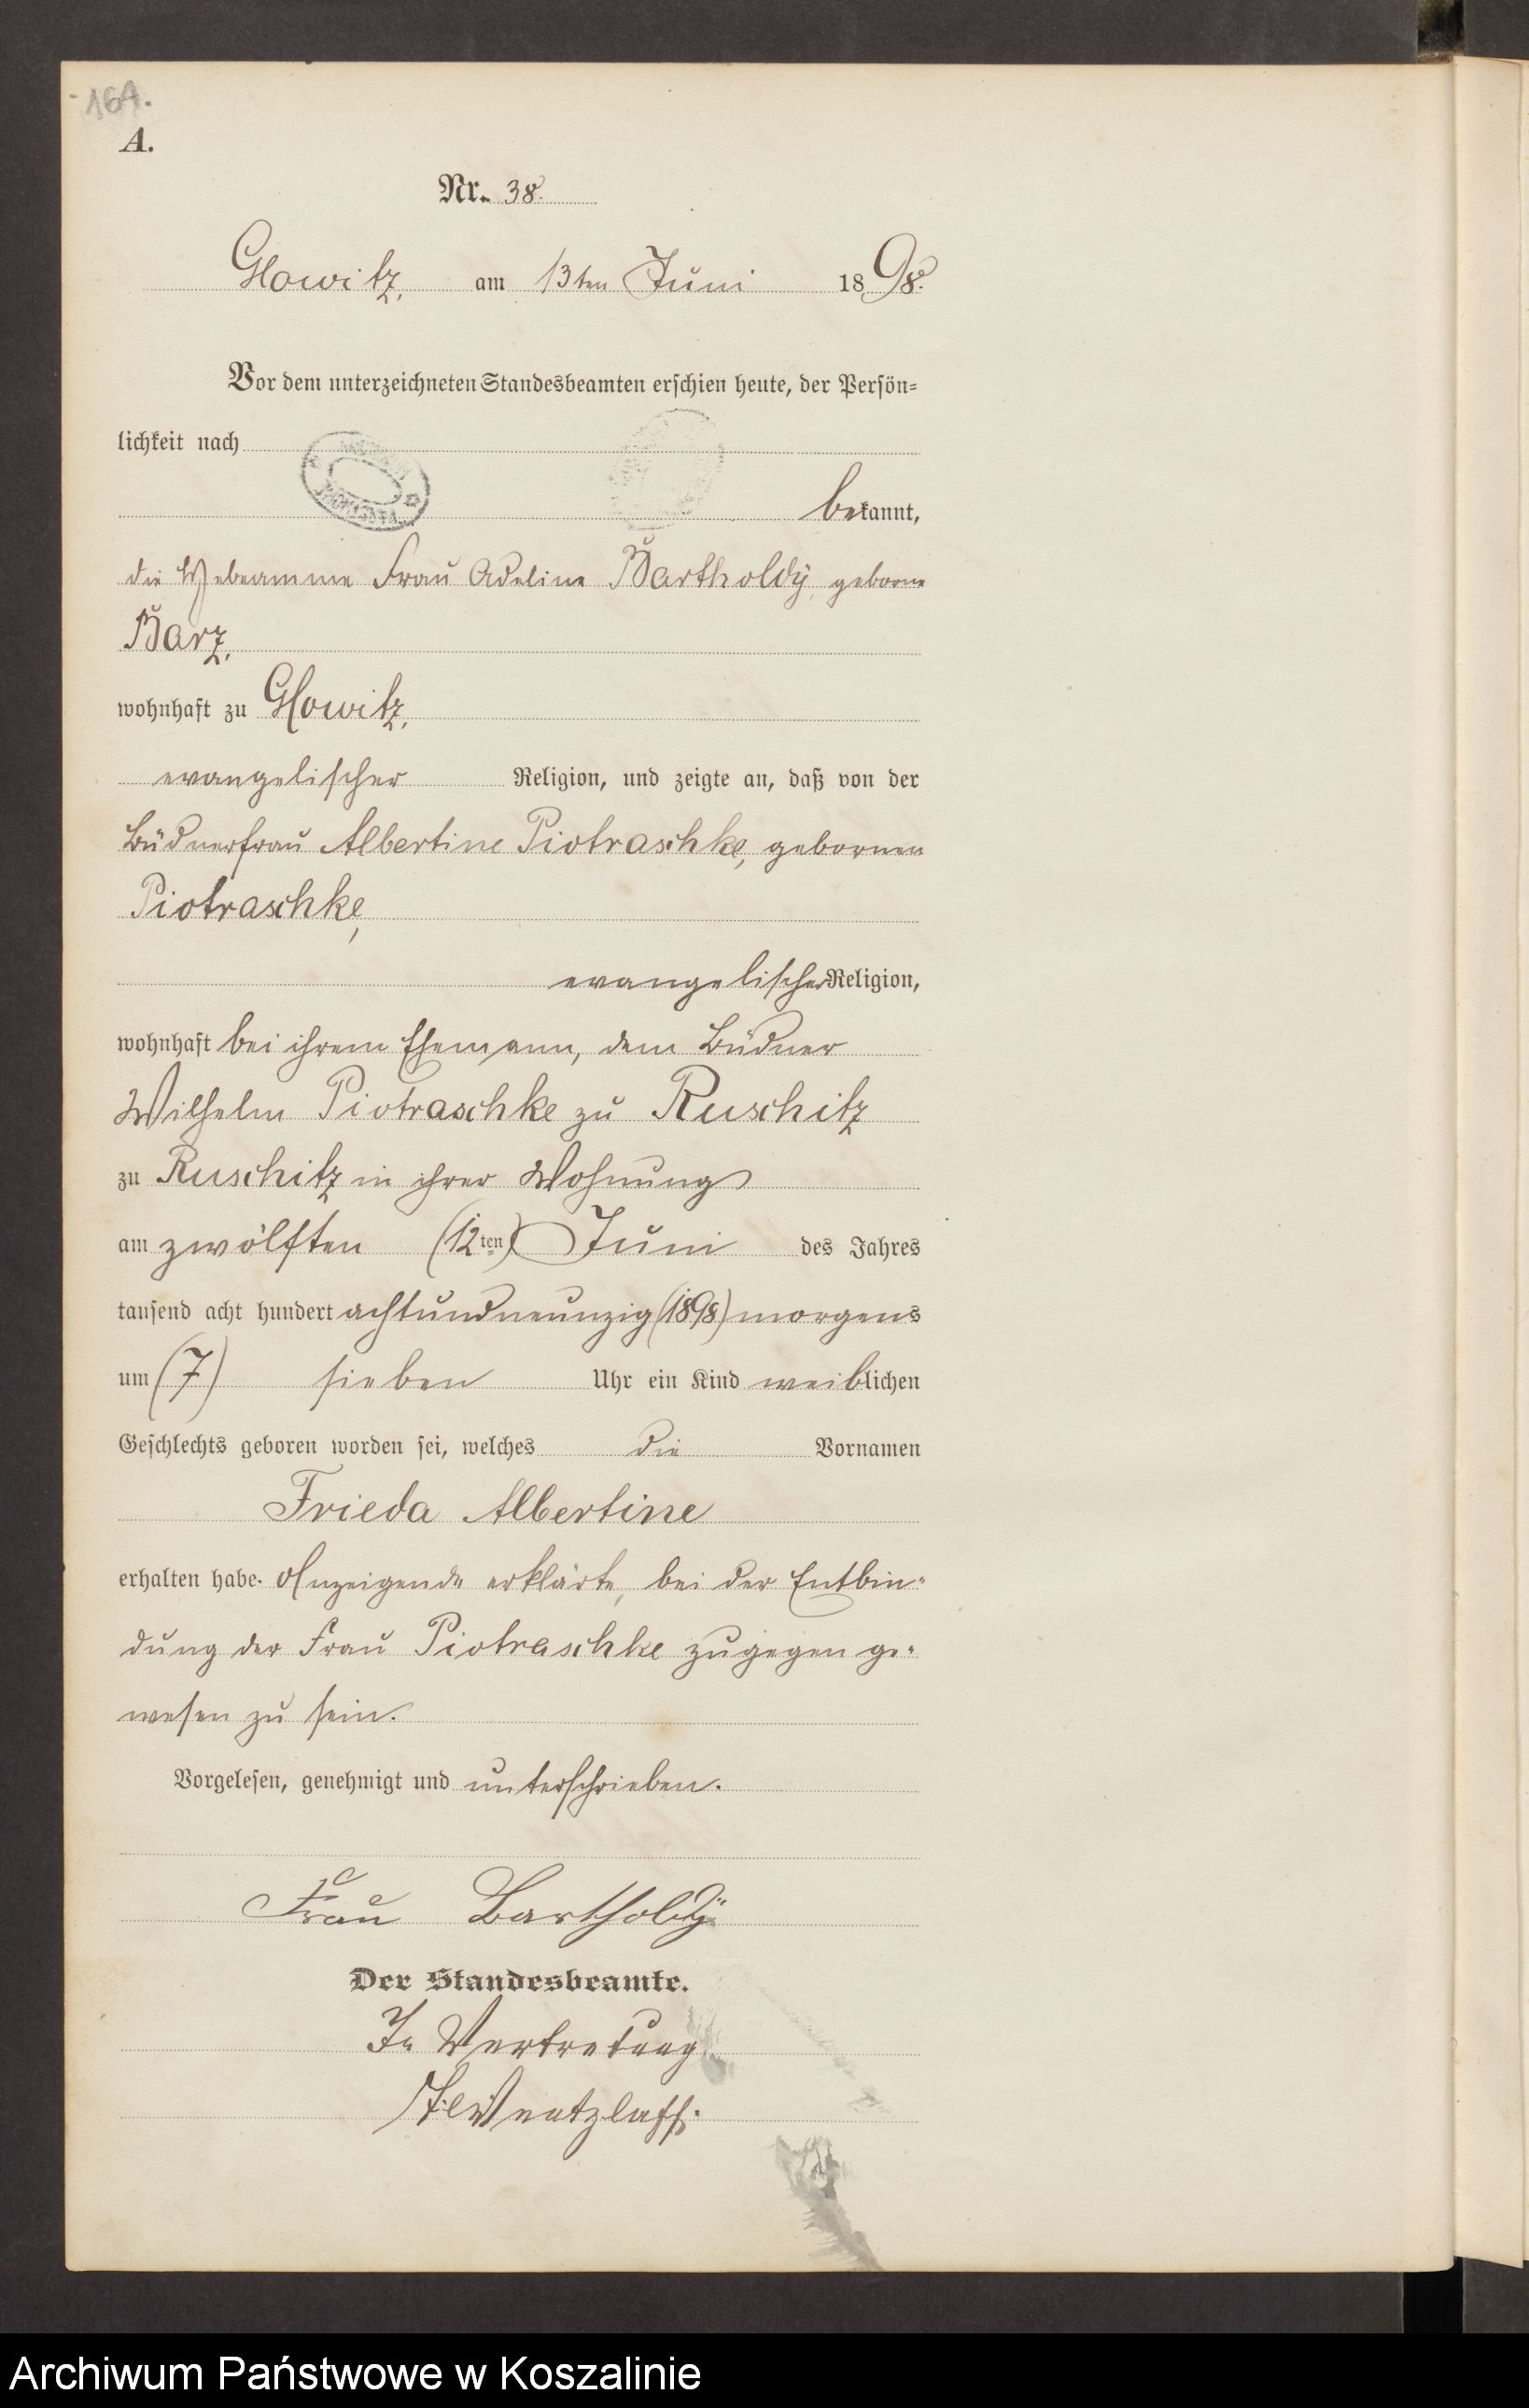 164.
A.
Nr. 38.
Glowitz, am 13ten Juni 1898.
Vor dem unterzeichneten Standesbeamten erschien heute, der Persön=
lichkeit nach
bekannt,
die Hebeamme Frau Adeline Bartholdÿ, geborne
Barz,
wohnhaft zu Glowitz,
evangelischer Religion, und zeigte an, daß von der
Büdnerfrau Albertine Piotraschke, gebornen
Piotraschke,
evangelischer Religion,
wohnhaft bei ihrem Ehemann, dem Büdner
Wilhelm Piotraschke zu Ruschitz
zu Ruschitz in ihrer Wohnung
am zwölften (12ten) Juni des Jahres
tausend acht hundert achtundneunzig (1898) morgens
um (7) sieben Uhr ein Kind weiblichen
Geschlechts geboren worden sei, welches die Vornamen
Frieda Albertine
erhalten habe. Anzeigende erklärte, bei der Entbin=
dung der Frau Piotraschke zugegen ge=
wesen zu sein.
Vorgelesen, genehmigt und unterschrieben.
Frau Bartholdÿ
Der Standesbeamte.
In Vertretung
Wentzlaff.
Archiwum Państwowe w Koszalinie